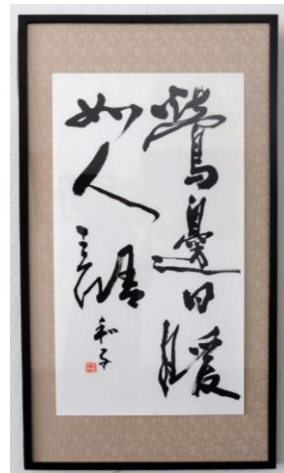 鶯邊日暖
如人語
和子